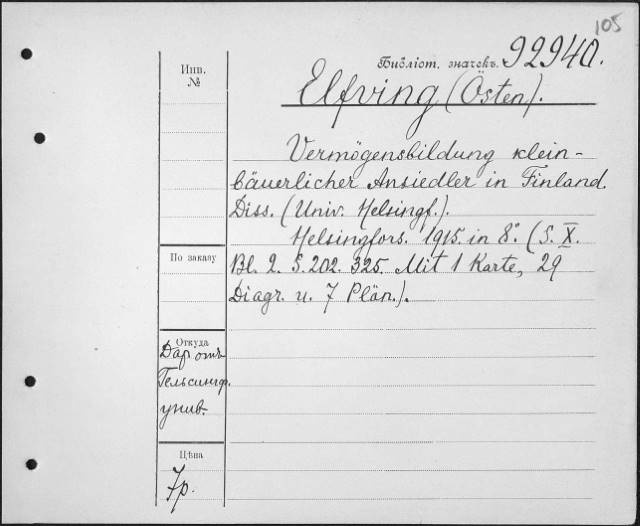 105
Библіот. значекъ. 92940.
Инв.
№
Elfving (Östen).
Vermögensbildung klein-
bäuerlicher Ansiedler in Finland.
Diss. (Univ. Helsingf.).
Helsingfors. 1915. in 8º. (S. X.
По заказу
Bl. 2. S. 202. 325. Mit 1 Karte, 29
Diagr. u. 7 Plän.).
Откуда
Дар отъ
Гельсингф.
унив.
Цѣна
7р.